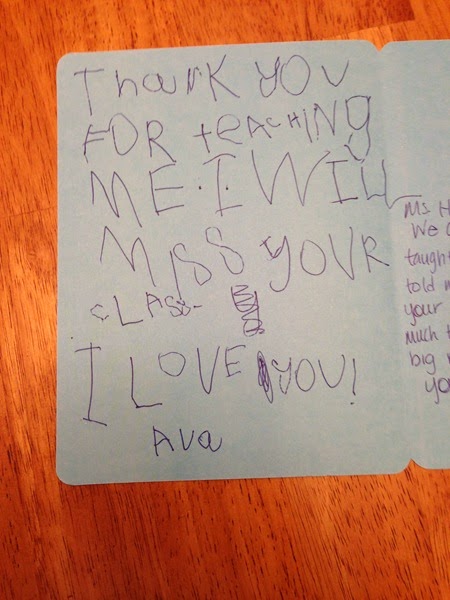 Thank you
FOR teACHING
ME. I WILL
MISS YOUR
CLASS.
I LOVE YOU!
Ava
Ms. H
We
taught
told m
your
much t
big
yo